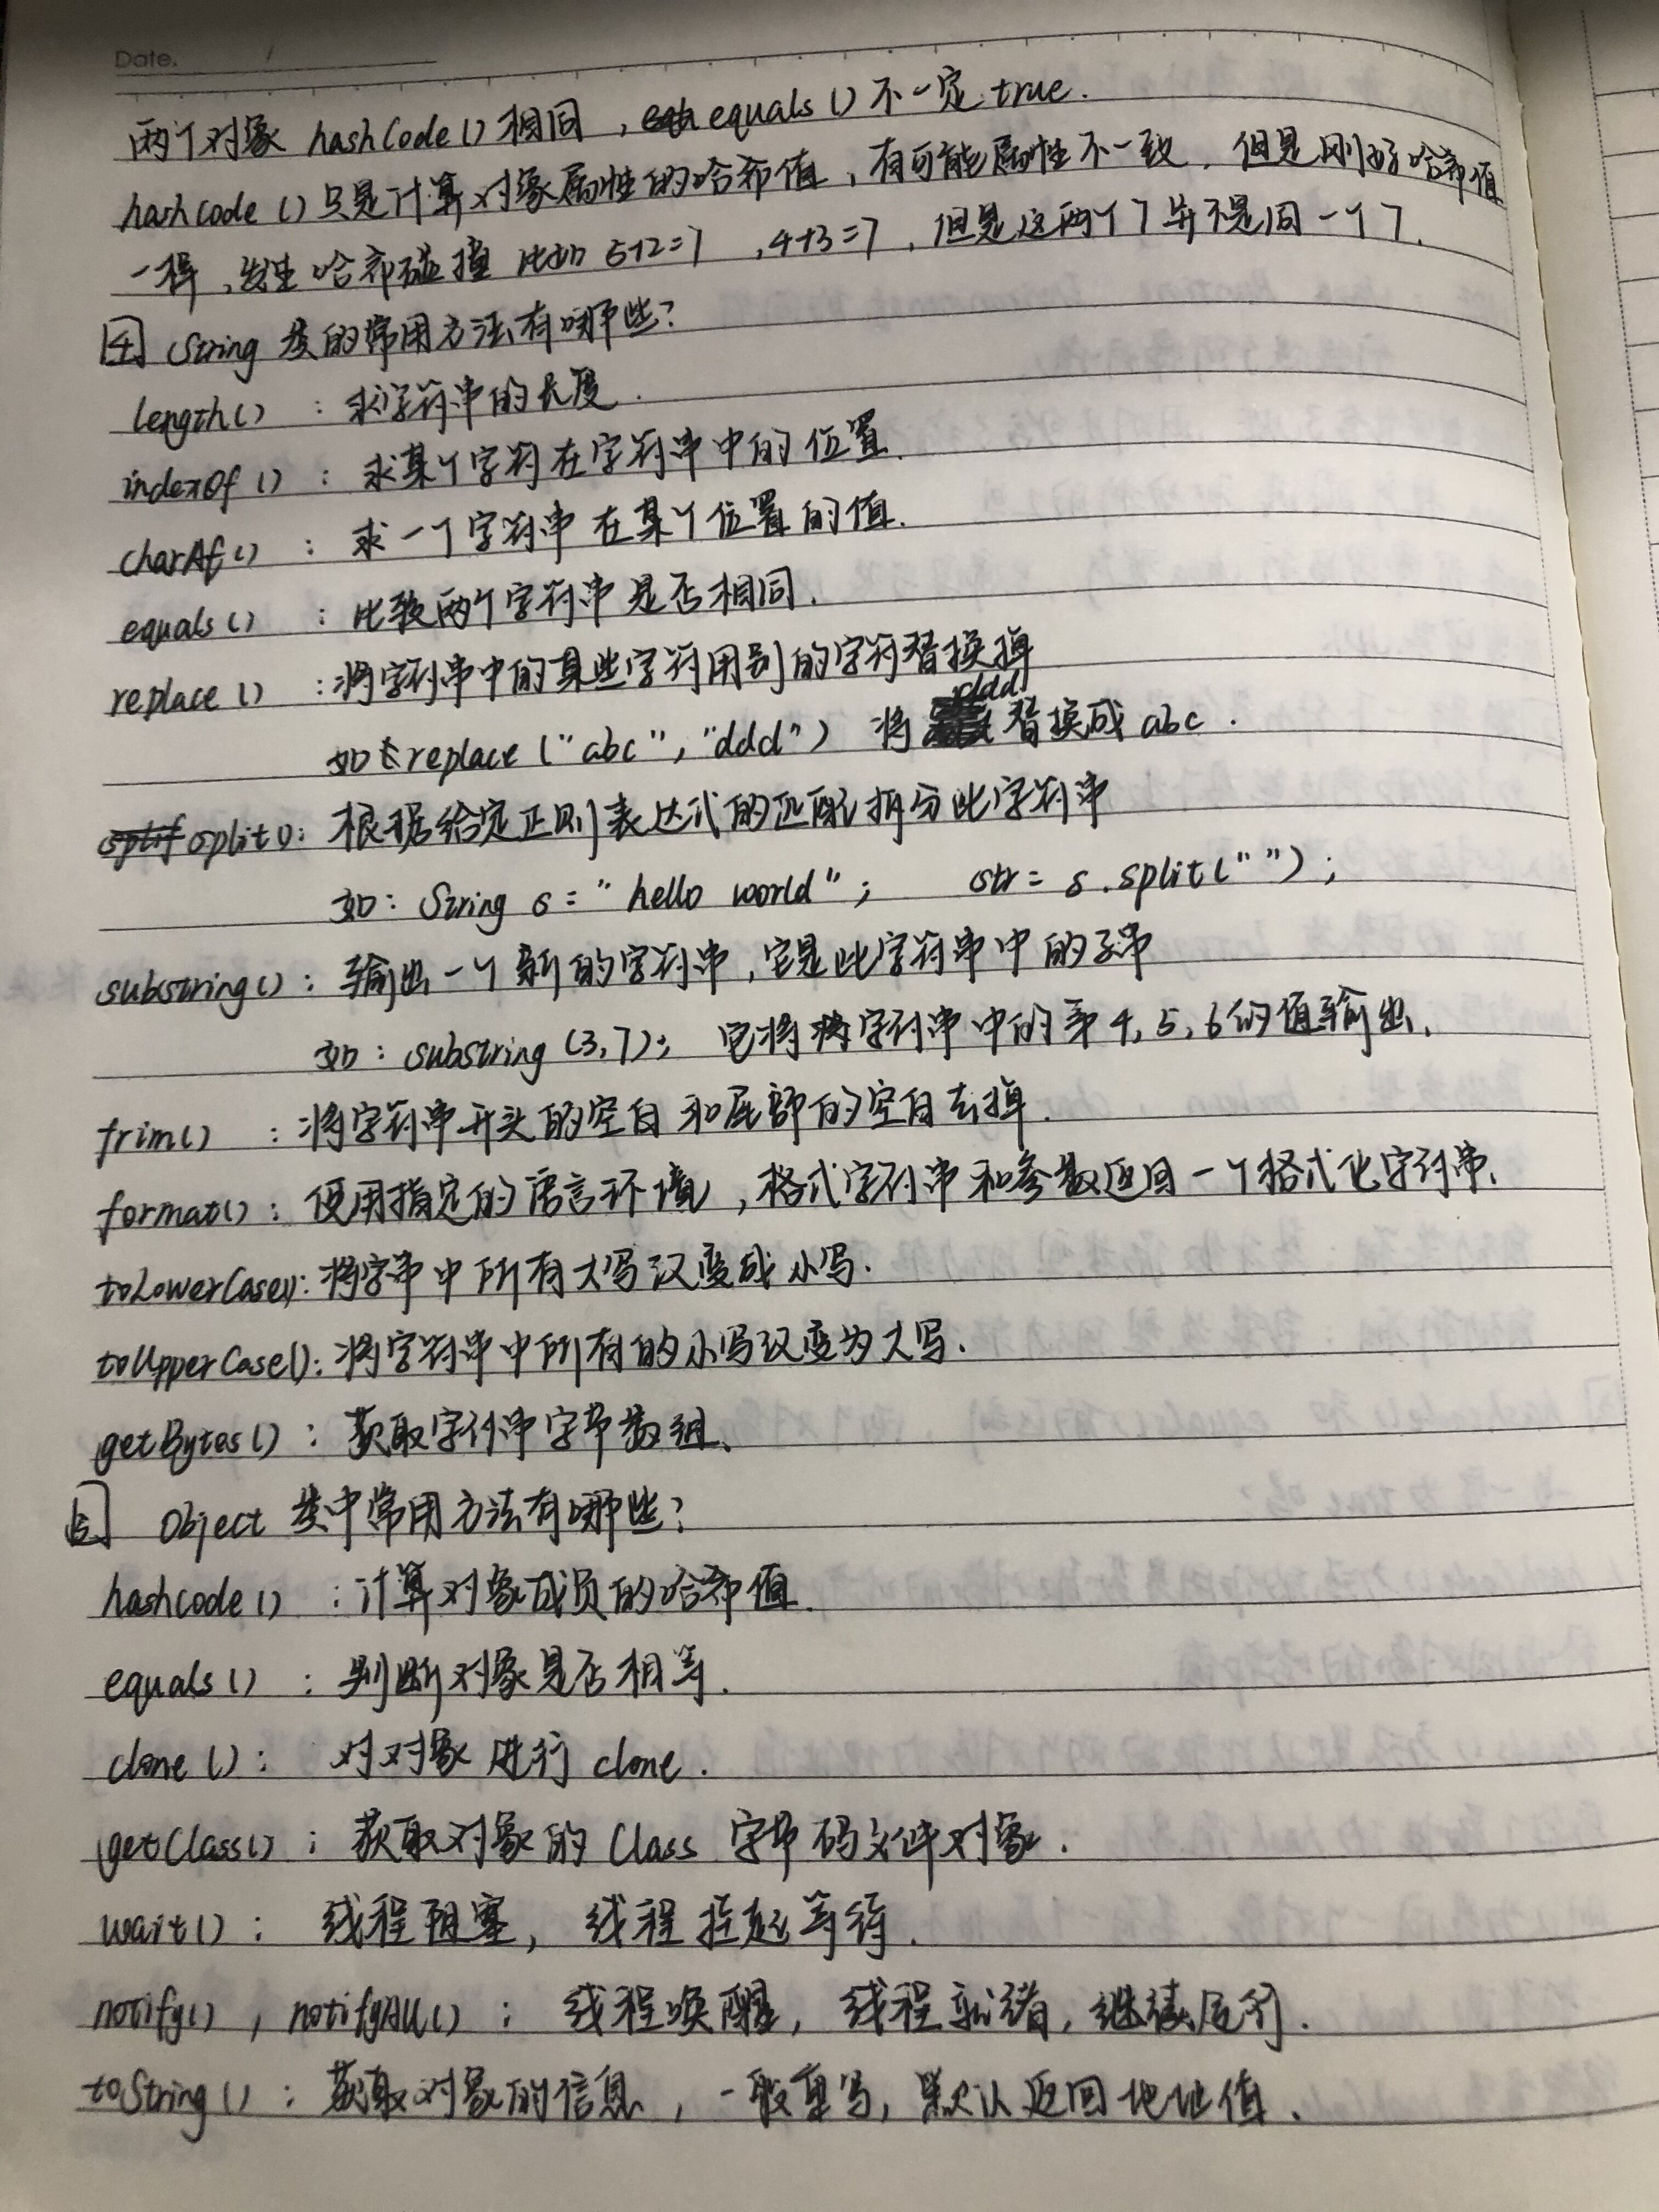 Date.
两个对象 hashCode() 相同，equals() 不一定 true.
hashCode() 只是计算对象属性的哈希值，有可能属性不一致，但是刚好哈希值
一样，发生哈希碰撞 比如 5+2=7，4+3=7，但是这两个7并不是同一个7.
4 String 类的常用方法有哪些？
length()：求字符串的长度.
indexOf()：求某个字符在字符串中的位置.
charAt()：求一个字符串在某个位置的值.
equals()：比较两个字符串是否相同.
replace()：将字符串中的某些字符用别的字符替换掉
如 replace("abc","ddd") 将 ddd 替换成 abc.
split()：根据给定正则表达式的匹配拆分此字符串
如：String s = "hello world"; str = s.split("");
substring()：输出一个新的字符串，它是此字符串中的子串
如：substring(3,7); 它将字符串中的第4,5,6的值输出.
trim()：将字符串开头的空白和尾部的空白去掉.
format()：使用指定的语言环境，格式字符串和参数返回一个格式化字符串.
toLowerCase()：将字串中所有大写改变成小写.
toUpperCase()：将字符串中所有的小写改变为大写.
getBytes()：获取字符串字节数组.
5 Object 类中常用方法有哪些？
hashcode()：计算对象成员的哈希值.
equals()：判断对象是否相等.
clone()：对对象进行 clone.
getClass()：获取对象的 Class 字节码文件对象.
wait()：线程阻塞，线程挂起等待.
notify()，notifyAll()：线程唤醒，线程就绪，继续运行.
toString()：获取对象的信息，一般重写，默认返回地址值.